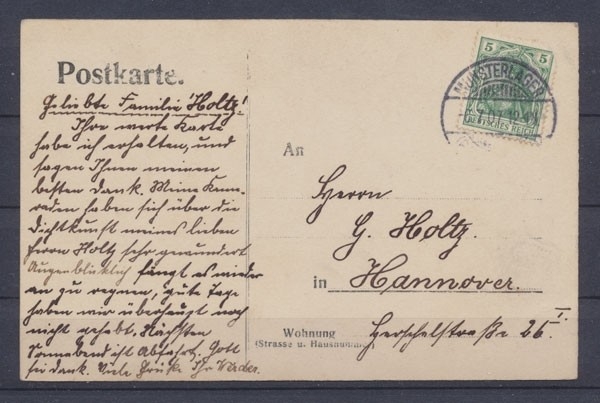 Postkarte.
Geliebte Familie Holtz!
Ihre werte Karte
habe ich erhalten, und
sagen Ihnen meinen
besten Dank. Meine Kam-
raden haben sich über die
Dichtkunst meines lieben
Herrn Holtz sehr gewundert
Augenblicklich fängt es wieder
an zu regnen, gute Tage
haben wir überhaupt noch
nicht gehabt. Nächsten
Sonnabend ist Abfahrt. Gott
sei dank. Viele Grüße Ihr
5
DEUTSCHES REICH
MUNSTERLAGER
An
Herrn
G. Holtz.
in Hannover.
Wohnung
(Strasse u. Hausnummer)
Herschelstraße 26 I.